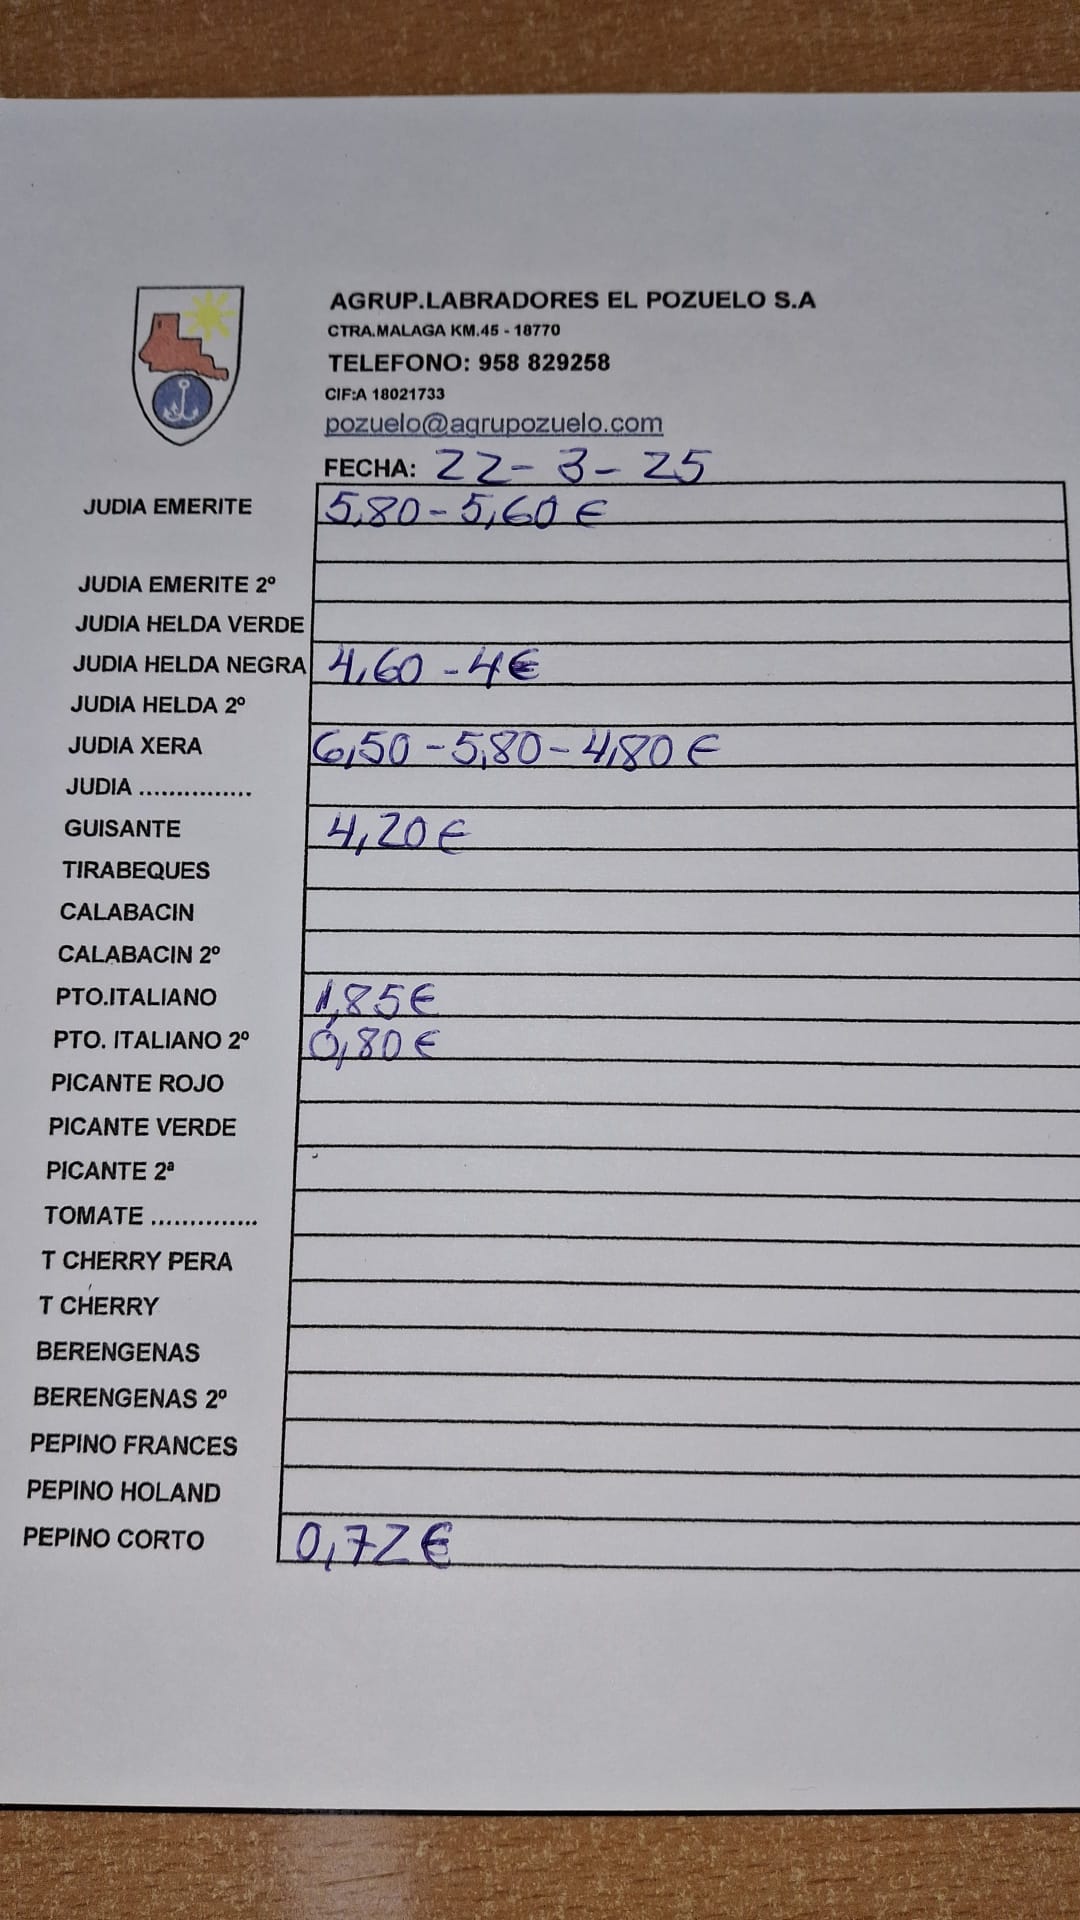 AGRUP.LABRADORES EL POZUELO S.A
CTRA.MALAGA KM.45 - 18770
TELEFONO: 958 829258
CIF:A 18021733
pozuelo@agrupozuelo.com
FECHA: 22-3-25
JUDIA EMERITE 5,80-5,60€
JUDIA EMERITE 2º
JUDIA HELDA VERDE
JUDIA HELDA NEGRA 4,60-4€
JUDIA HELDA 2º
JUDIA XERA 6,50-5,80-4,80€
JUDIA ...............
GUISANTE 4,20€
TIRABEQUES
CALABACIN
CALABACIN 2º
PTO.ITALIANO 1,85€
PTO. ITALIANO 2º 0,80€
PICANTE ROJO
PICANTE VERDE
PICANTE 2ª
TOMATE ..............
T CHERRY PERA
T CHERRY
BERENGENAS
BERENGENAS 2º
PEPINO FRANCES
PEPINO HOLAND
PEPINO CORTO 0,72€